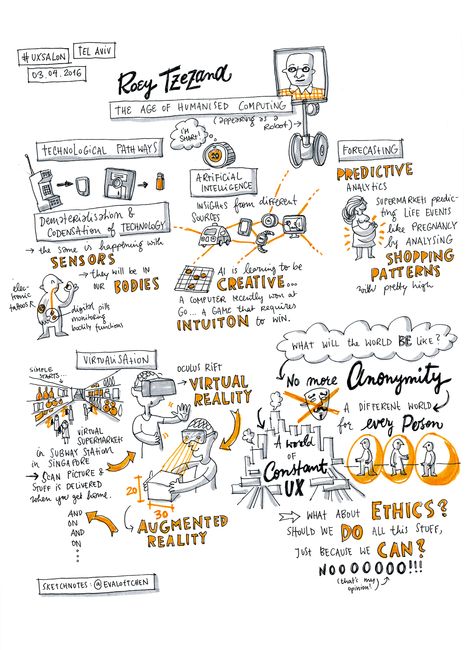 #UXSALON
TEL AVIV
03.04.2016
Roey Tzezana
THE AGE OF HUMANISED COMPUTING
(appearing as a
Robot)→
TECHNOLOGICAL PATHWAYS
Dematerialisation &
Codensation of TECHNOLOGY
→ the same is happening with
SENSORS
→ they will be in
our BODIES
elec-
tronic
tattoos
digital pills
monitoring
bodily functions
I'M
SMART!
ARTIFICIAL
INTELLIGENCE
INSIGHTS from different
SOURCES
AI is learning to be
CREATIVE...
A COMPUTER recently won at
GO... A GAME that requires
INTUITON to WIN.
FORECASTING
PREDICTIVE
ANALYTICS
SUPERMARKETS predic-
ting LIFE EVENTS
like PREGNANCY
by ANALYSING
SHOPPING
PATTERNS
with pretty high
VIRTUALISATION
SIMPLE
STARTS...
VIRTUAL
SUPERMARKET
in SUBWAY STATION
in SINGAPORE
→ SCAN PICTURE &
STUFF IS DELIVERED
when you get home.
AND
ON
AND
ON
OCULUS RIFT
VIRTUAL
REALITY
20
30
AUGMENTED
REALITY
WHAT WILL THE WORLD BE LIKE?
No more Anonymity
A DIFFERENT WORLD
for every Person
A world
of
Constant
UX
WHAT ABOUT ETHICS?
SHOULD WE DO ALL this STUFF,
JUST because WE CAN?
NOOOOOOO!!!
(that's my
opinion!)
SKETCHNOTES: @EVALOTTCHEN